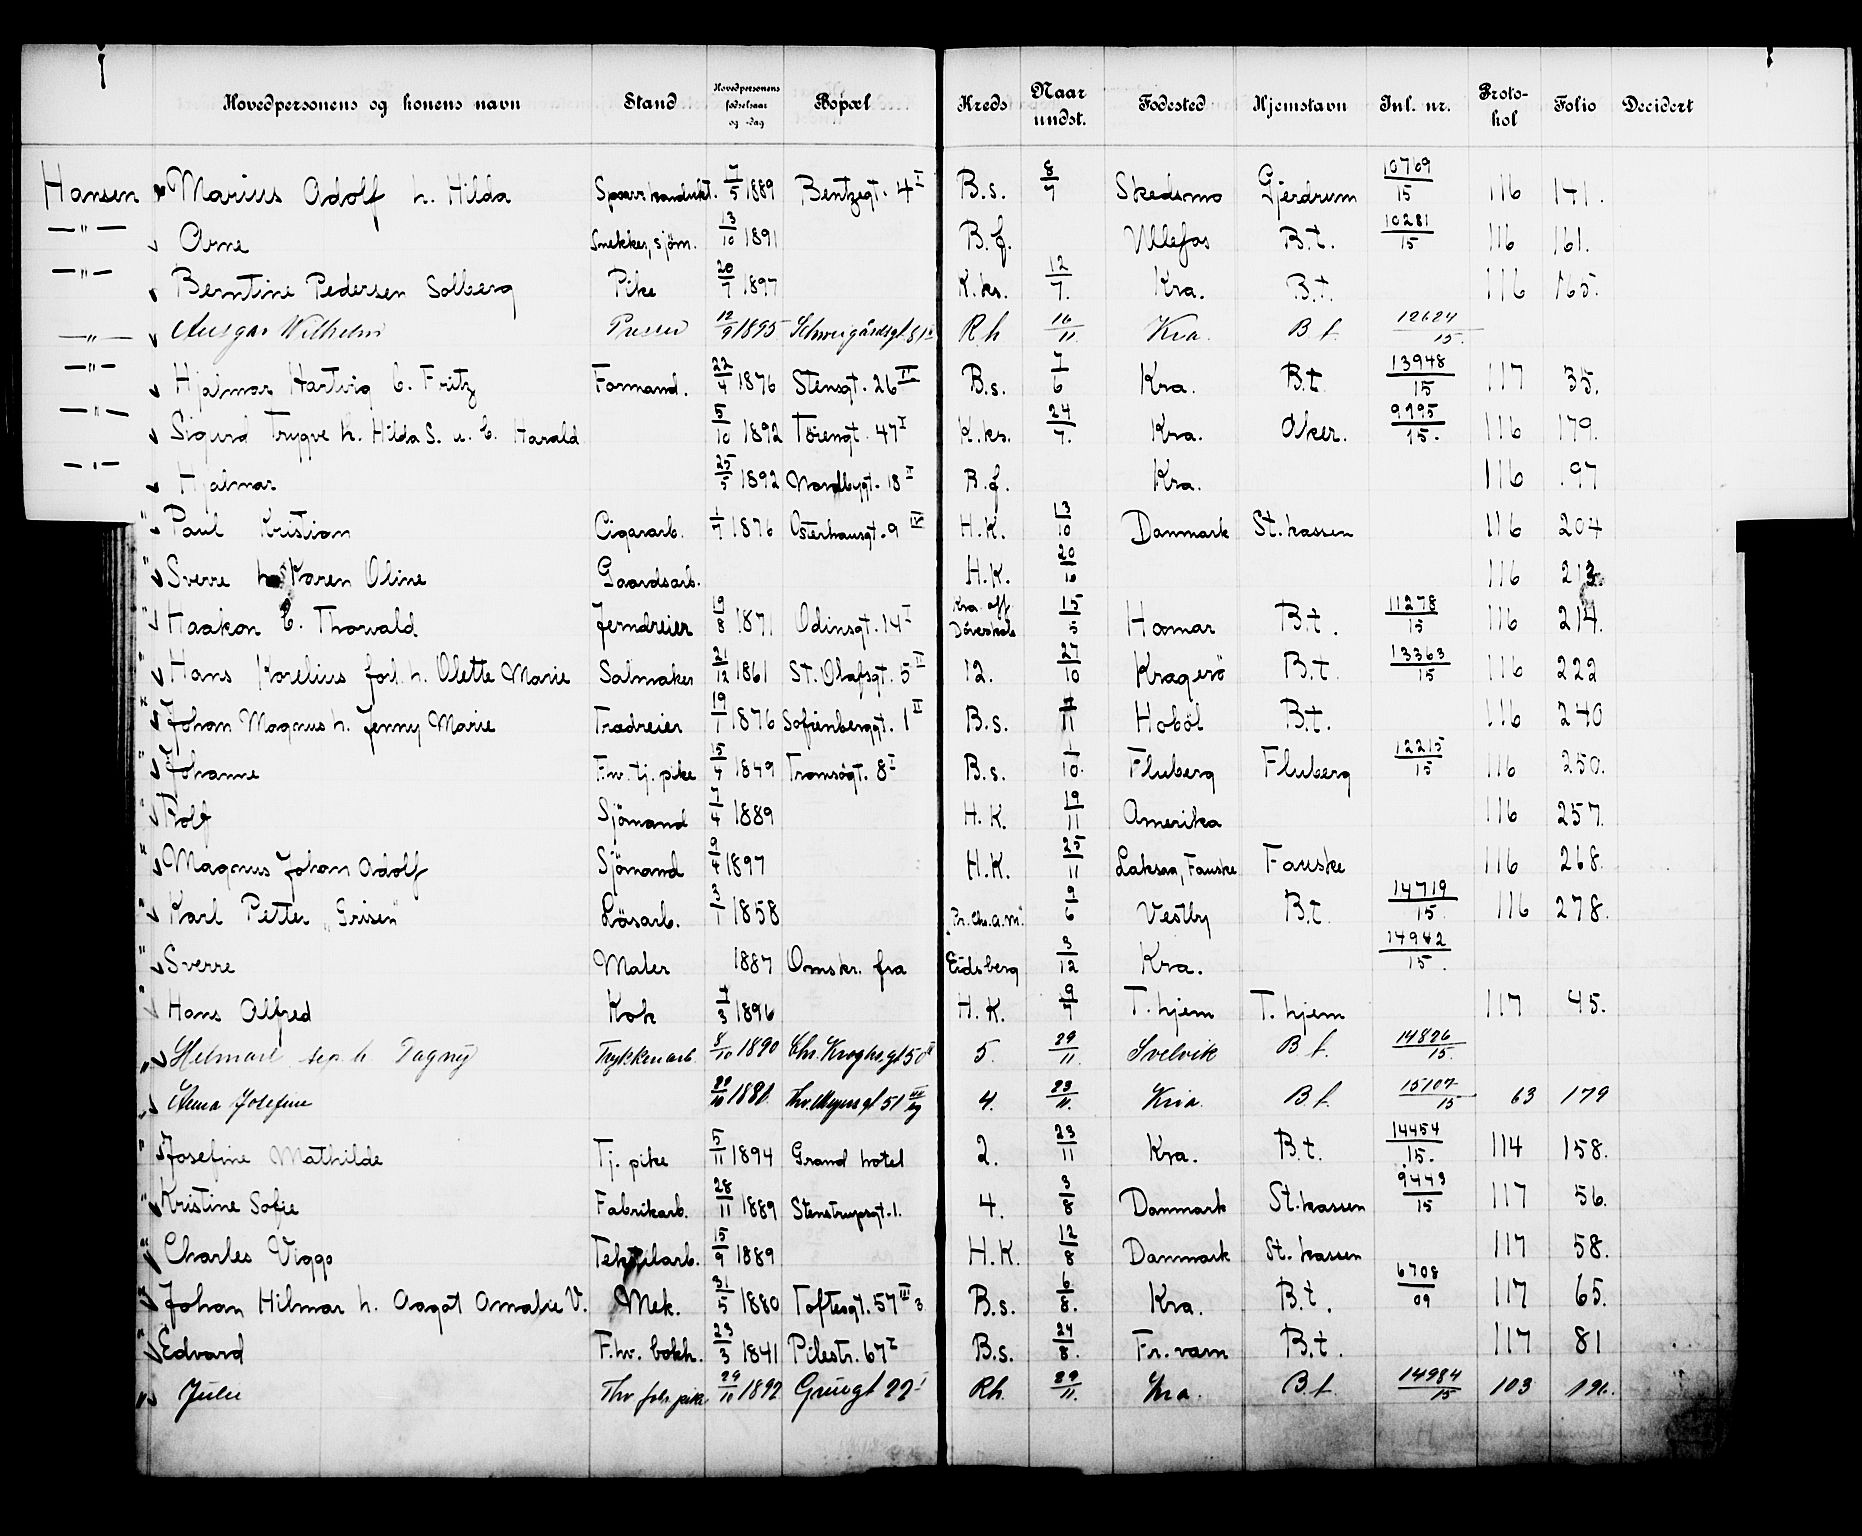 Hovedpersonens og konens navn Stand Hovedpersonens fødselsaar og -dag Bopæl Kreds Naar undst. Fødested Hjemstavn Inl. nr. Proto-kol Folio Decidert
Hansen Marius Adolf h. Hilda Sporv.kondukt. 7/5 1889 Bentzegt. 4 I B.s. 8/7 Skedsmo Gjerdrum 10769/15 116 141.
—"— Arne Snekker, sjøm. 13/10 1891 B.f. Ullefos B.t. 10281/15 116 161.
—"— Berntine Pedersen Solberg Pike 20/7 1897 K.ks. 12/7. Kra. B.t. 116 165.
—"— Ansgar Wilhelm 12/9 1895 Schweigårdsgt 81 R.h 16/11 Kria. B.t. 12624/15.
—"— Hjalmar Hartvig C. Fritz Formand. 22/4 1876 Stensgt. 26 B.s. 7/6 Kra. B.t. 13948/15 117 35.
—"— Sigurd Trygve h. Hilda S. u. C. Harald 5/10 1892 Töiengt. 47 I K.ks. 24/7. Kra. Aker. 9995/15. 116 179.
—"— Hjalmar 25/5 1892 Nordbygt. 18 II B.f. Kra. 116 197
" Paul Kristian Cigararb. 1/7 1876 Osterhausgt. 9 IV H.K. 13/10 Danmark St.kassen 116 204
" Sverre h. Karen Oline Gaardsarb. H.K. 20/10 116 213
" Haakon C. Thorvald Jerndreier 19/8 1871 Odinsgt. 14 I Kra. off. Döveskole 15/5 Hamar B.t. 11278/15 116 214.
" Hans Korelius forl. h. Olette Marie Salmaker 21/12 1861 St. Olafsgt. 5 II 12. 27/10 Kragerö B.t. 13363/15 116 222
" Johan Magnus h. Jenny Marie Trädreier 19/1 1876 Sofienberggt. 1 II B.s. 4/11 Hoböl B.t. 116 240
" Johanne F.hv. tj. pike 15/4 1849 Tromsögt. 8 I B.s. 1/10. Fluberg Fluberg 12215/15 116 250.
" Rolf Sjömand 7/4 1889 H.K. 19/11 Amerika 116 257.
" Magnus Johan Adolf Sjömand 9/4 1897 H.K. 25/11 Laksaa, Fauske Fauske 116 268.
" Karl Petter "Grisen" Lösarb. 3/1 1858 9/6 Vestby B.t. 14719/15. 116 278.
" Sverre Maler 1887 Omskr. fra Eidsberg 3/12 Kra. 14942/15.
" Hans Alfred Kok 4/3 1896 H.K. 9/7 T.hjem T.hjem 117 45.
" Helmart sep. h. Dagny Trykkeriarb. 8/10 1890 Chr. Kroghsgt 50 II 5. 29/11. Svelvik B.t. 14826/15.
" Anna Josefine 29/10 1881. Thv. Meyersgt 51 III 4. 23/11. Kria. B.t. 15107/15 63 179
" Josefine Mathilde Tj. pike 5/11 1894 Grand hotel 2. 23/11 Kra. B.t. 14454/15. 114 158.
" Kristine Sofie Fabrikarb. 28/11 1889 Stenstrupsgt. 1. 4. 3/8 Danmark St.kassen 9443/15 117 56.
" Charles Viggo Tekstilarb. 15/9 1889 H.K. 12/8 Danmark St. kassen 117 58.
" Johan Hilmar h. Aagot Amalie V. Mek. 31/5 1880 Toftesgt. 57 III 3 B.s. 6/8. Kra. B.t. 6708/09 117 65.
" Edvard F.hv. bokh. 23/3 1841 Pilestr. 67 I B.s. 24/8. Fr.værn B.t. 117 81
" Julie 29/11 1892 Grüegt 22 I R.h. 29/11. Kra. B.t. 14984/15 103 196.